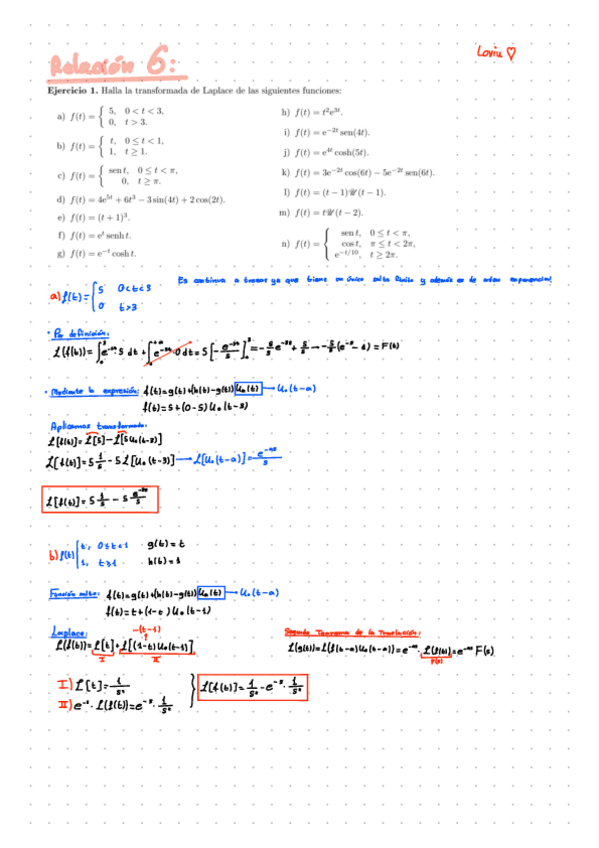 Relación 6:
Loviu ♡
Ejercicio 1. Halla la transformada de Laplace de las siguientes funciones:
a) f(t) = { 5, 0 < t < 3,
0, t > 3.
b) f(t) = { t, 0 ≤ t < 1,
1, t ≥ 1.
c) f(t) = { sen t, 0 ≤ t < π,
0, t ≥ π.
d) f(t) = 4e^{5t} + 6t^3 − 3 sin(4t) + 2 cos(2t).
e) f(t) = (t + 1)^3.
f) f(t) = e^t senh t.
g) f(t) = e^{−t} cosh t.
h) f(t) = t^2 e^{3t}.
i) f(t) = e^{−2t} sen(4t).
j) f(t) = e^{4t} cosh(5t).
k) f(t) = 3e^{−2t} cos(6t) − 5e^{−2t} sen(6t).
l) f(t) = (t − 1)𝒰(t − 1).
m) f(t) = t𝒰(t − 2).
n) f(t) = { sen t, 0 ≤ t < π,
cos t, π ≤ t < 2π,
e^{−t/10}, t ≥ 2π.
a) f(t) = { 5 0<t<3
0 t>3
Es continua a trozos ya que tiene un único salto finito y además es de orden exponencial
· Por definición:
ℒ(f(t)) = ∫_0^3 e^{-st}·5 dt + ∫_3^{+∞} e^{-st}·0 dt = 5[-e^{-st}/s]_0^3 = -5/s e^{-3s} + 5/s → -5/s (e^{-3s} - 1) = F(s)
· Mediante la expresión: f(t)=g(t)+(h(t)-g(t)) u_a(t) → u_0(t-a)
f(t)=5+(0-5)u_0(t-3)
Aplicamos transformada:
ℒ[f(t)]=ℒ[5]-ℒ[5u_0(t-3)]
ℒ[f(t)]=5 1/s - 5ℒ[u_0(t-3)] → ℒ[u_0(t-a)]= e^{-as}/s
ℒ[f(t)]=5 1/s - 5 e^{-3s}/s
b) f(t) { t, 0≤t<1 g(t)=t
1, t≥1 h(t)=1
Función salto: f(t)=g(t)+(h(t)-g(t)) u_a(t) → u_0(t-a)
f(t)=t+(1-t)u_0(t-1)
-(t-1)
Laplace:
ℒ(f(t))=ℒ[t]+ℒ[(1-t)u_0(t-1)]
I II
Segundo Teorema de la Translación:
ℒ(g(t))=ℒ(f(t-a)u_0(t-a))=e^{-as}·ℒ(f(t))=e^{-as} F(s)
F(s)
I) ℒ[t]=1/s²
II) e^{-s}·ℒ(f(t))=e^{-s}·1/s²
ℒ[f(t)]=1/s² - e^{-s}·1/s²